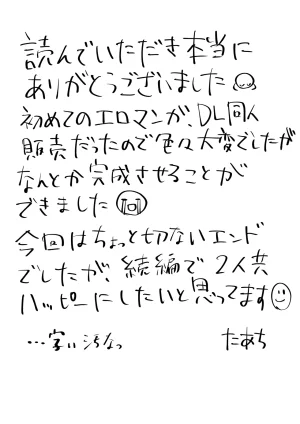 読んでいただき本当に
ありがとうございました
初めてのエロマンガ、DL同人
販売だったので色々大変でしたが
なんとか完成させることが
できました
今回はちょっと切ないエンド
でしたが、続編で2人共
ハッピーにしたいと思ってます
…字い汚なっ
たあち